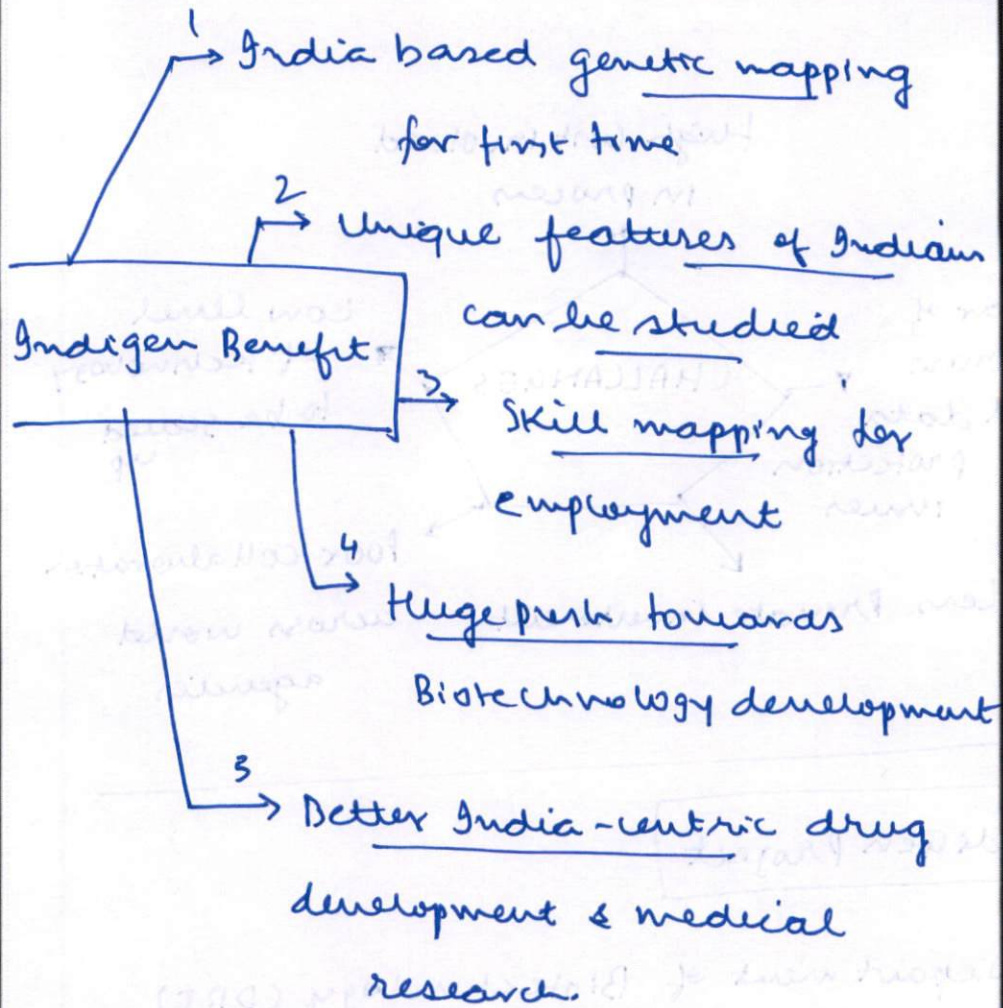 1
India based genetic mapping
for first time
2
Unique features of Indians
can be studied
Indigen Benefit
3
Skill mapping for
employment
4
Huge push towards
Biotechnology development
5
Better India-centric drug
development & medical
research.